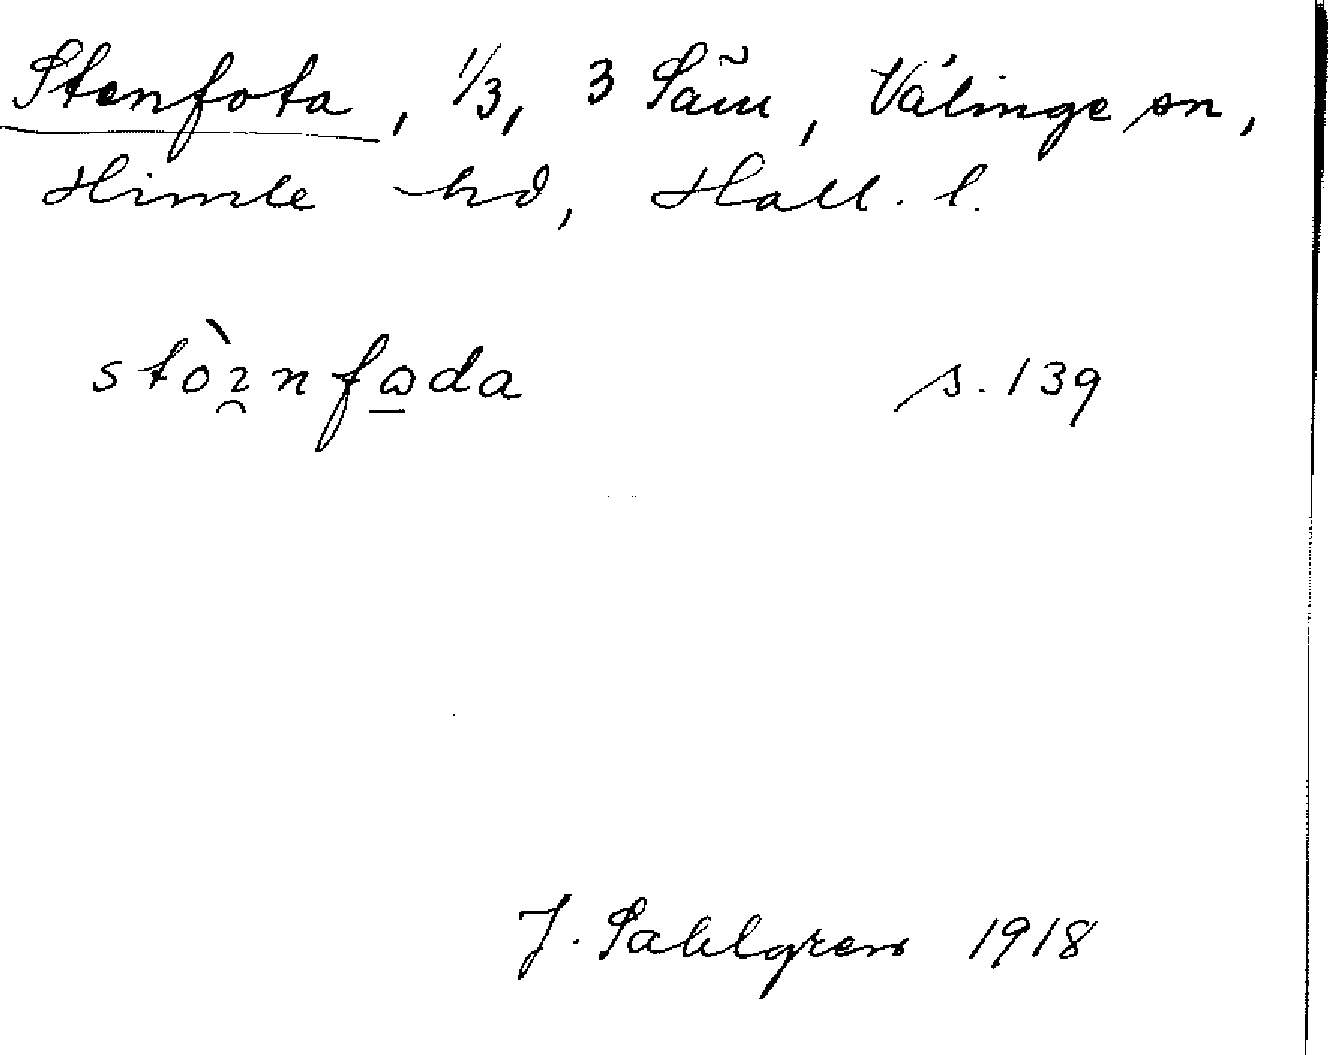 Stenfota, 1/3, 3 Säm, Valinge sn,
Himle hd, Hall. l.
s. 139
J. Sahlgren 1918